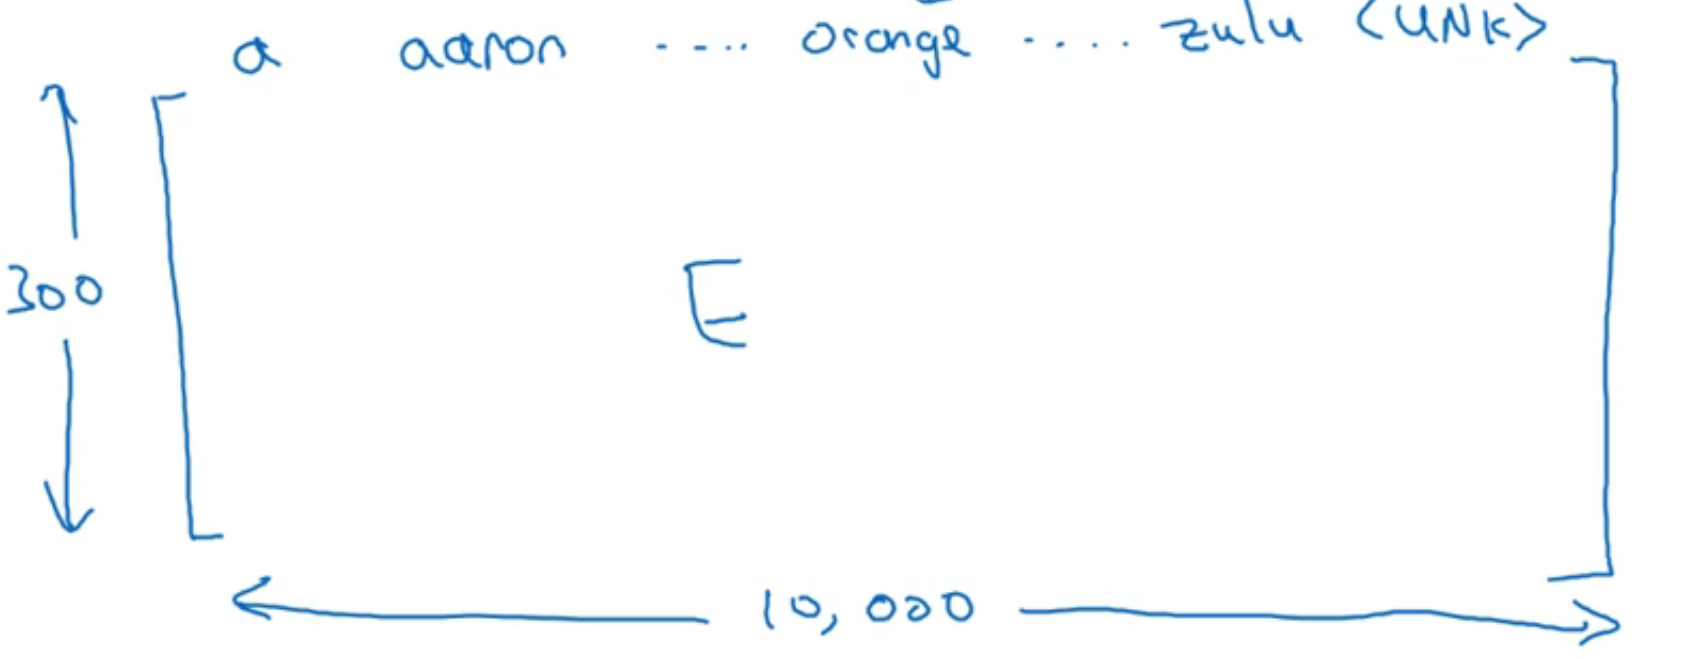 a aaron .... orange .... zulu <UNK>
300
E
10,000